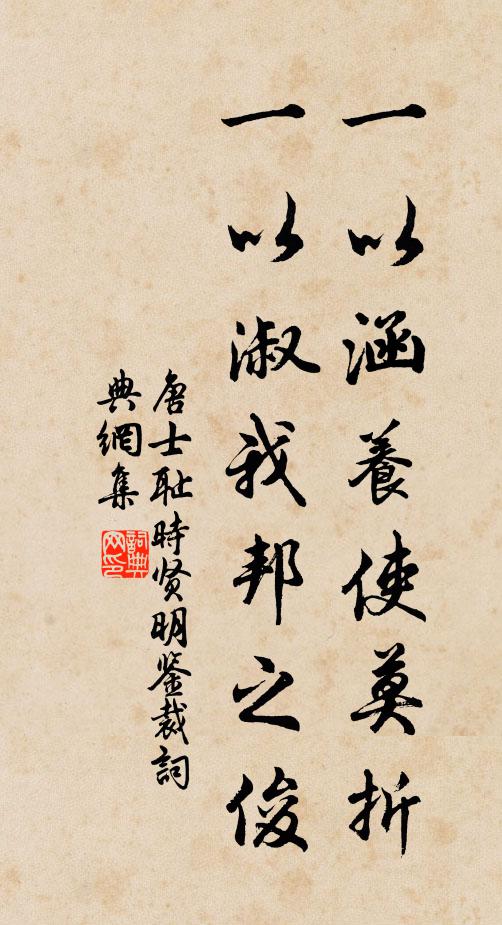 一以涵養使莫折
一以淑我邦之俊
唐士耻時贤明鉴裁詞
典網集
詞典
网印